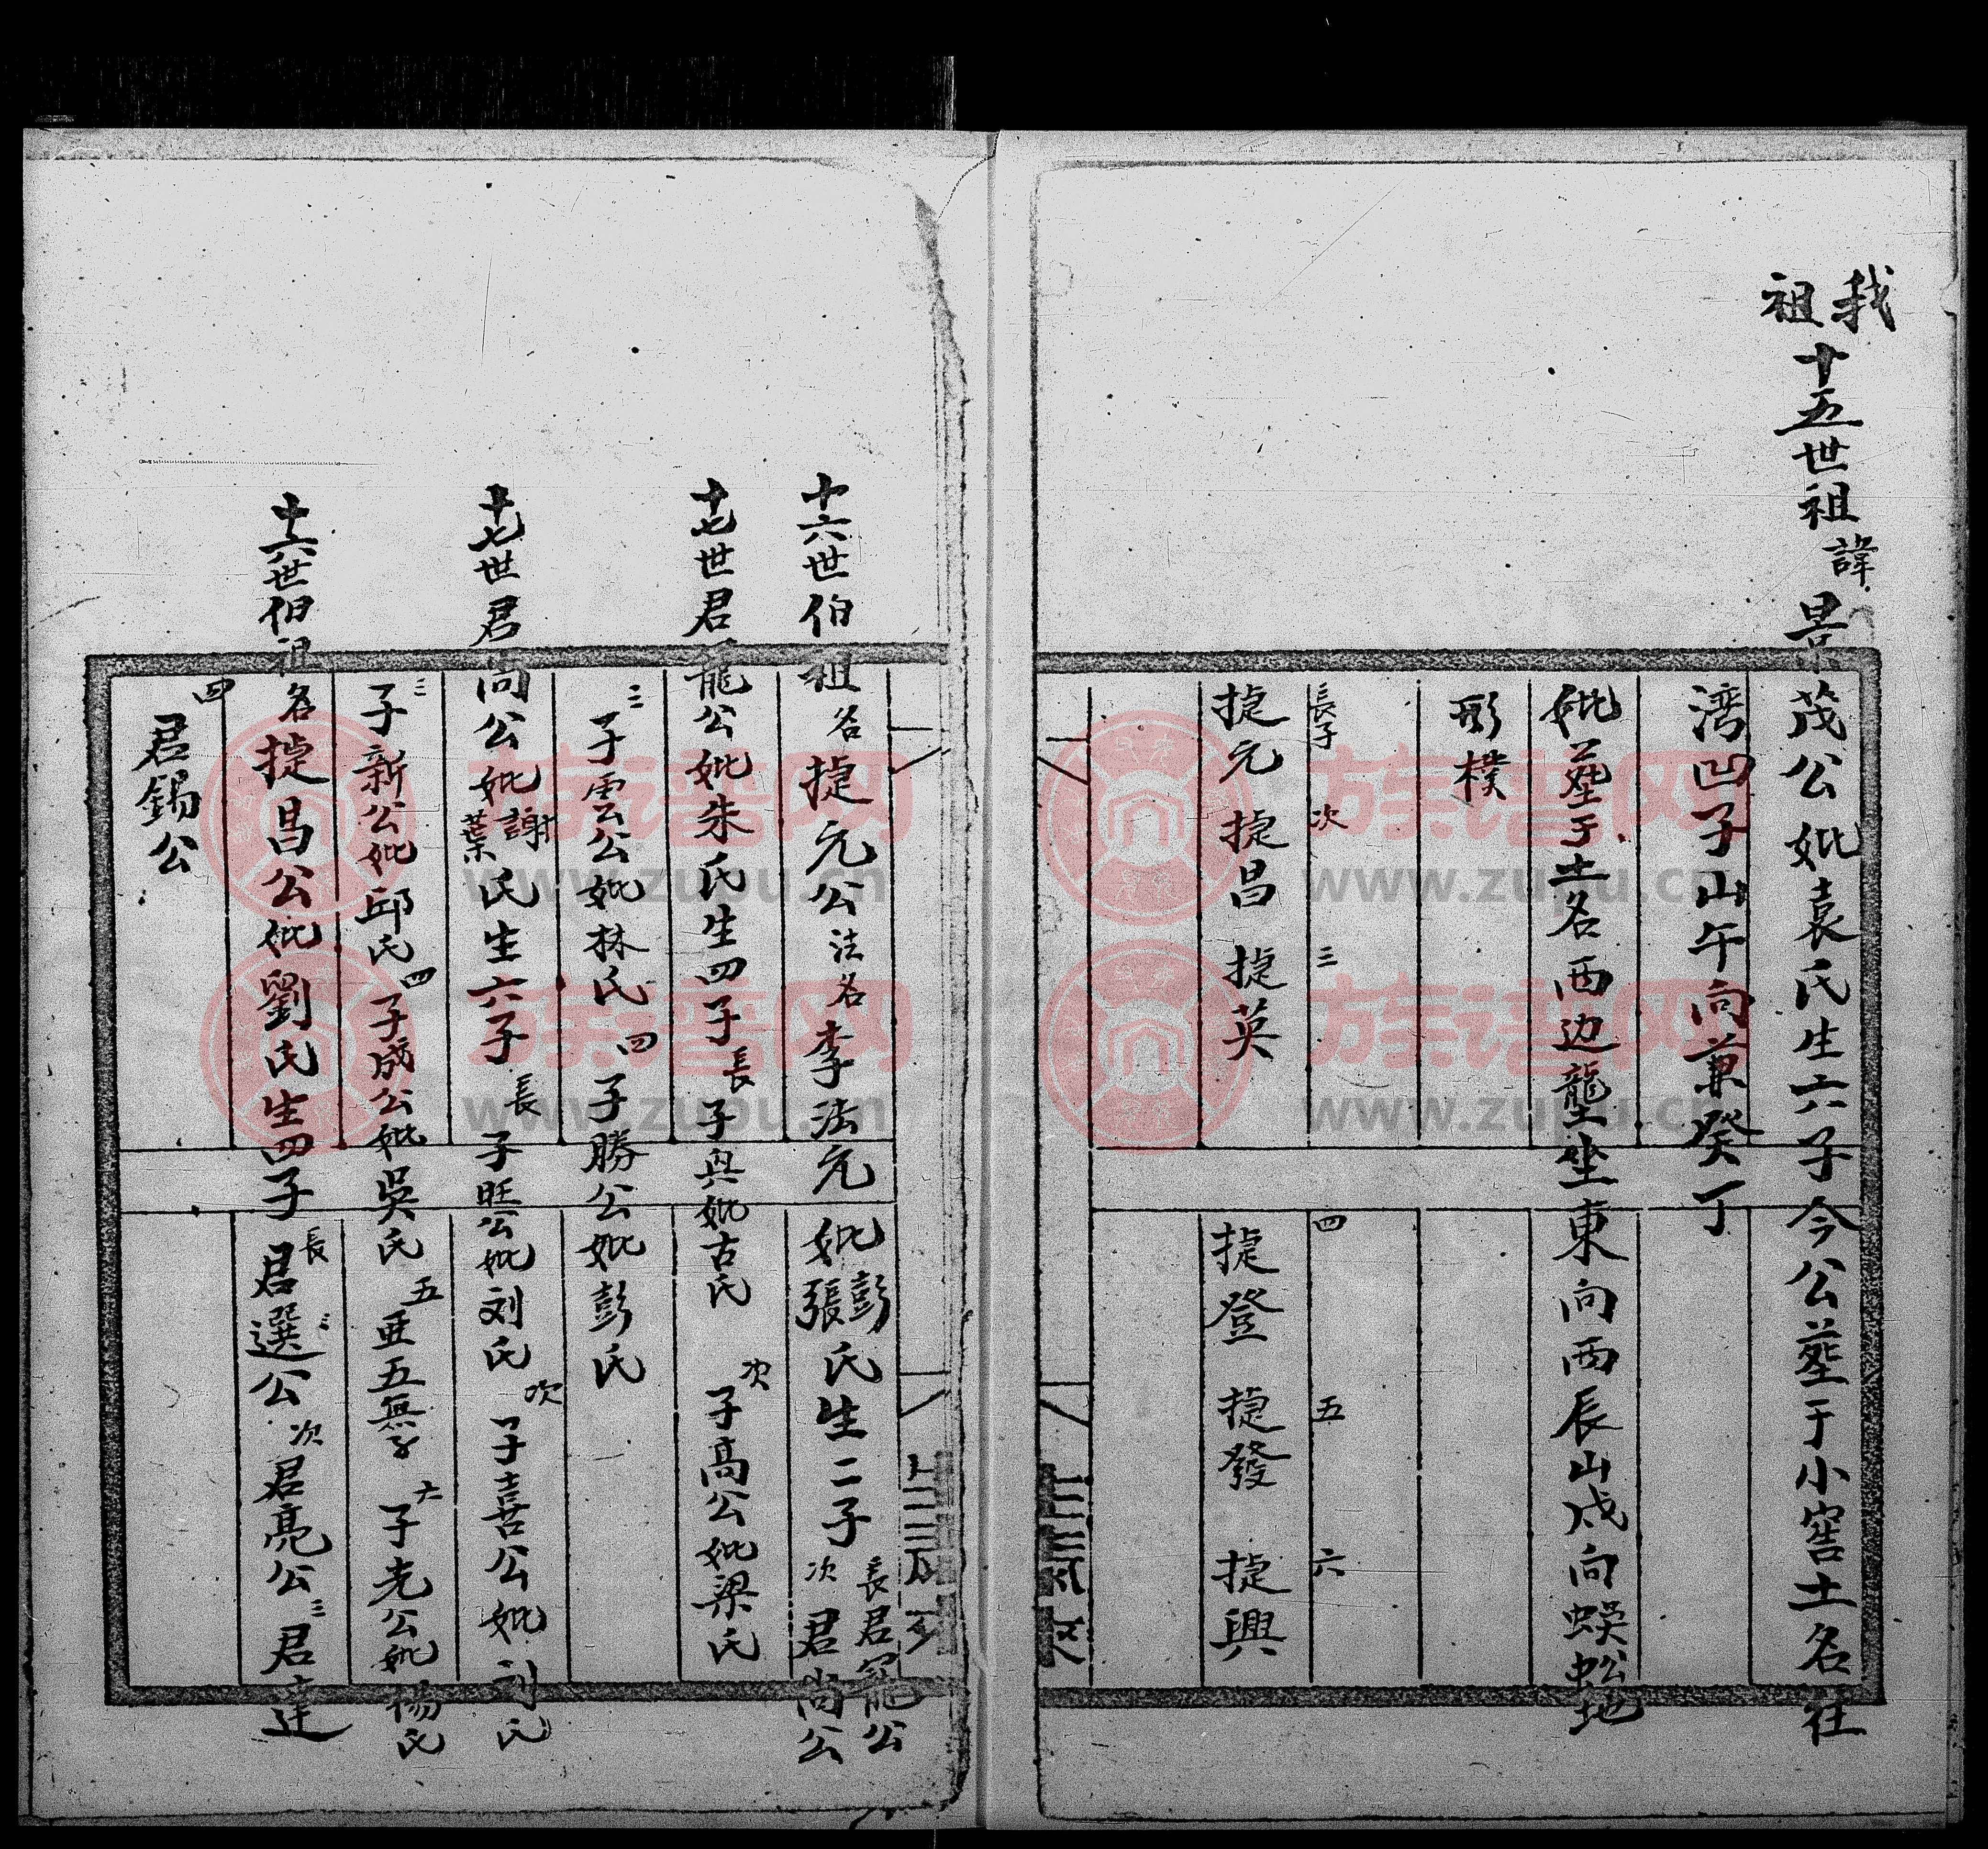 我祖
十五世祖諱景茂公妣袁氏生六子今公葬于小窖土名社
湾凹子山午向兼癸丁
妣葬于土名西边壟坐東向西辰山戌向蜈蚣地
形樸
長子 次 三 四 五 六
捷元 捷昌 捷英 捷登 捷發 捷興
十六世伯祖名捷元公法名李法元妣彭張氏生二子長君寵公次君尚公
十七世君寵公妣朱氏生四子長子興妣古氏 次子高公妣梁氏
三子雲公妣林氏四子勝公妣彭氏
十七世君尚公妣謝葉氏生六子長子旺公妣刘氏次子喜公妣刘氏
三子新公妣邱氏四子成公妣吳氏五亜五無子六子光公妣楊氏
十六世伯祖名捷昌公妣劉氏生四子長君選公次君亮公三君達
四君錫公
族谱网
www.zupu.cn
族谱网
www.zupu.cn
族谱网
www.zupu.cn
族谱网
www.zupu.cn